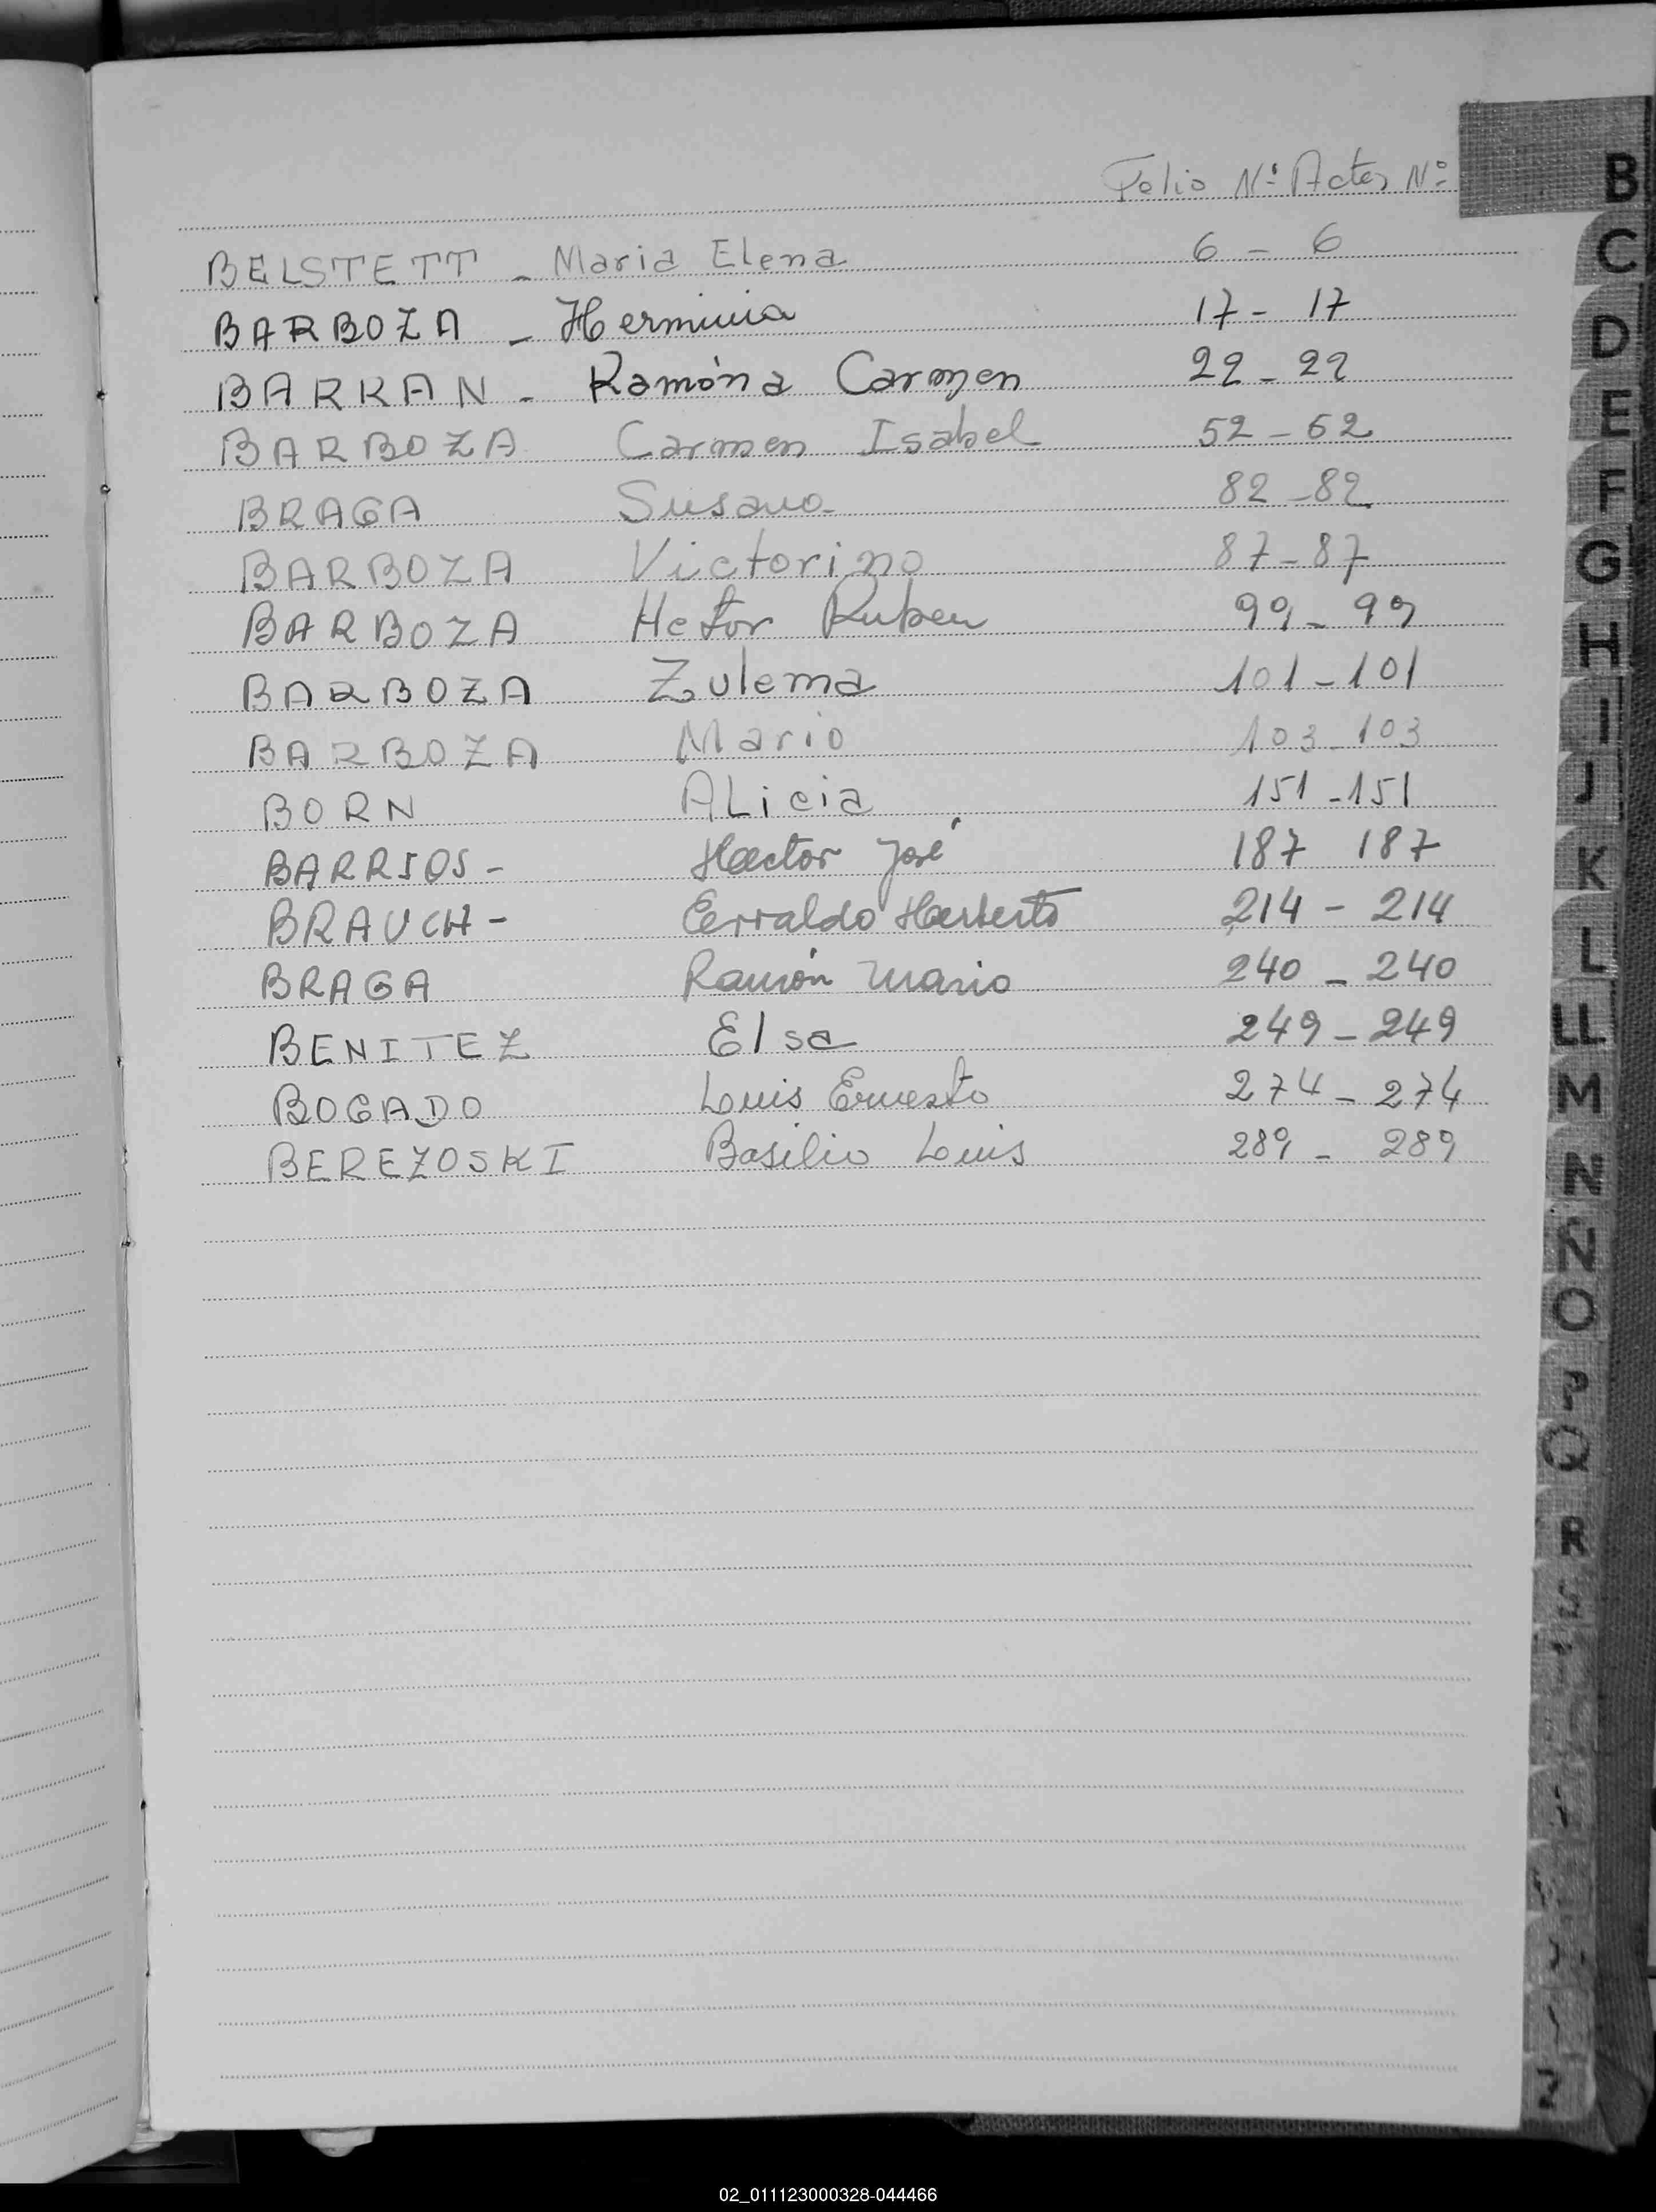 Folio Nº Actas Nº
BELSTETT - Maria Elena 6 - 6
BARBOZA - Herminia 17 - 17
BARKAN - Ramóna Carmen 22 - 22
BARBOZA Carmen Isabel 52 - 52
BRAGA Susana 82 - 82
BARBOZA Victorino 87 - 87
BARBOZA Hector Ruben 99 - 99
BARBOZA Zulema 101 - 101
BARBOZA Mario 103 - 103
BORN ALicia 151 - 151
BARRIOS - Hector José 187 187
BRAUCH - Erraldo Herberto 214 - 214
BRAGA Ramón Mario 240 - 240
BENITEZ Elsa 249 - 249
BOGADO Luis Ernesto 274 - 274
BEREZOSKI Basilio Luis 289 - 289
B
C
D
E
F
G
H
I
J
K
L
LL
M
N
Ñ
O
P
Q
R
S
Z
02_011123000328-044466